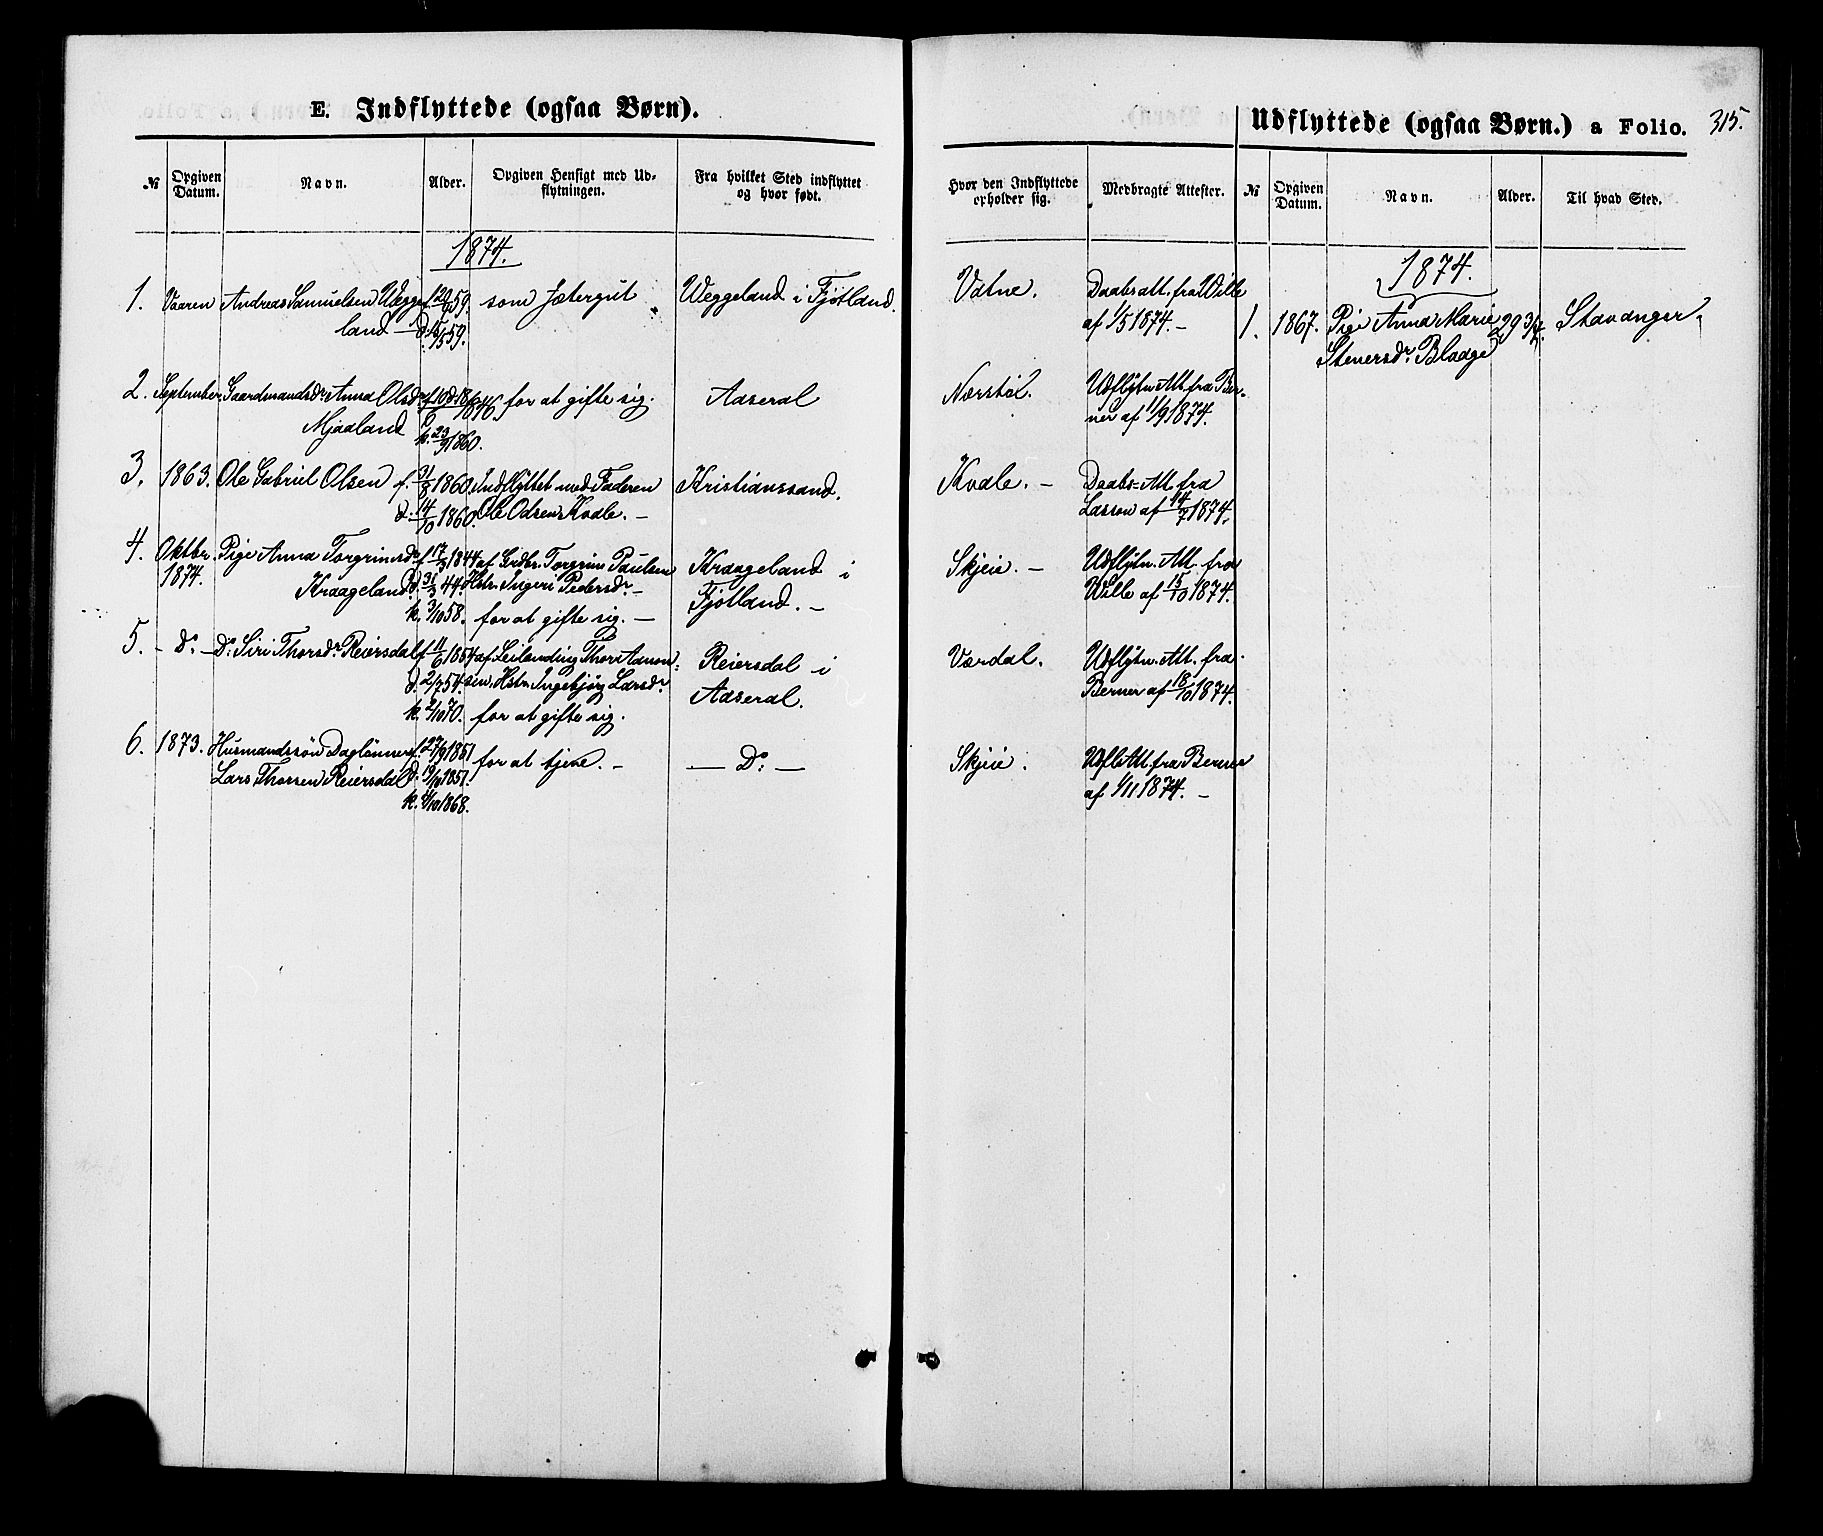 E. Indflyttede (ogsaa Børn).
№
Opgiven Datum.
Navn.
Alder.
Opgiven Hensigt med Udflytningen.
Fra hvilket Sted indflyttet og hvor født.
1874.
1. Vaaren Andreas Samuelsen Wegge f. 20/4 59. som Jætergut Weggeland i Fjotland.
land — d. 15/5 59.
2. September Gaardmandsdr Anna Olsdr f. 10 d. 18/6 46. for at gifte sig. Aaseral
Mjaaland k. 23/9 1860.
3. 1863. Ole Gabriel Olsen f. 31/8 1860. Indflyttet med Faderen Kristianssand.
d. 14/10 1860. Ole Odsen Kvale. —
4. Oktbr. Pige Anna Torgrimsdr f. 17/3 1844 af Grdbr. Torgrim Paulsen Kraageland i
1874. Kraageland d. 31/3 44. Hstr. Ingeri Pedersdr. — Fjotland. —
k. 3/10 58. for at gifte sig. —
5. — Do. — Do. Siri Thorsdr. Reiersdal f. 11/6 1854 af Leilending Thor Aanon- Reiersdal i
d. 2/7 54. sen, Hstr. Ingebjørg Larsdr. Aaseral.
k. 2/10 70. for at gifte sig.
6. 1873. Husmandssøn Daglønner f. 27/9 1851 for at tjene. — — Do: —
Lars Thorsen Reiersdal d. 9/10 1851.
k. 4/10 1868.
Udflyttede (ogsaa Børn.) a Folio. 315.
Hvor den Indflyttede opholder sig.
Medbragte Attester.
№
Opgiven Datum.
Navn.
Alder.
Til hvad Sted.
Vatne. Daabsatt. fra Wille
af 1/5 1874. —
Nærstøl. Udflytn. Att. fra Ber-
ner af 11/9 1874.
Kvale. — Daabs-Att. fra
Lasson af 14/7 1874.
Skjeie. — Udflytn. Att. fra
Wille af 15/10 1874.
Værdal. Udflytn. Att. fra
Berner af 18/10 1874.
Skjeie. Udfl. Att. fra Berner
af 1/11 1874. —
1874.
1. 1867. Pige Anna Marie 29 3/4. Stavanger.
Stenersdr.